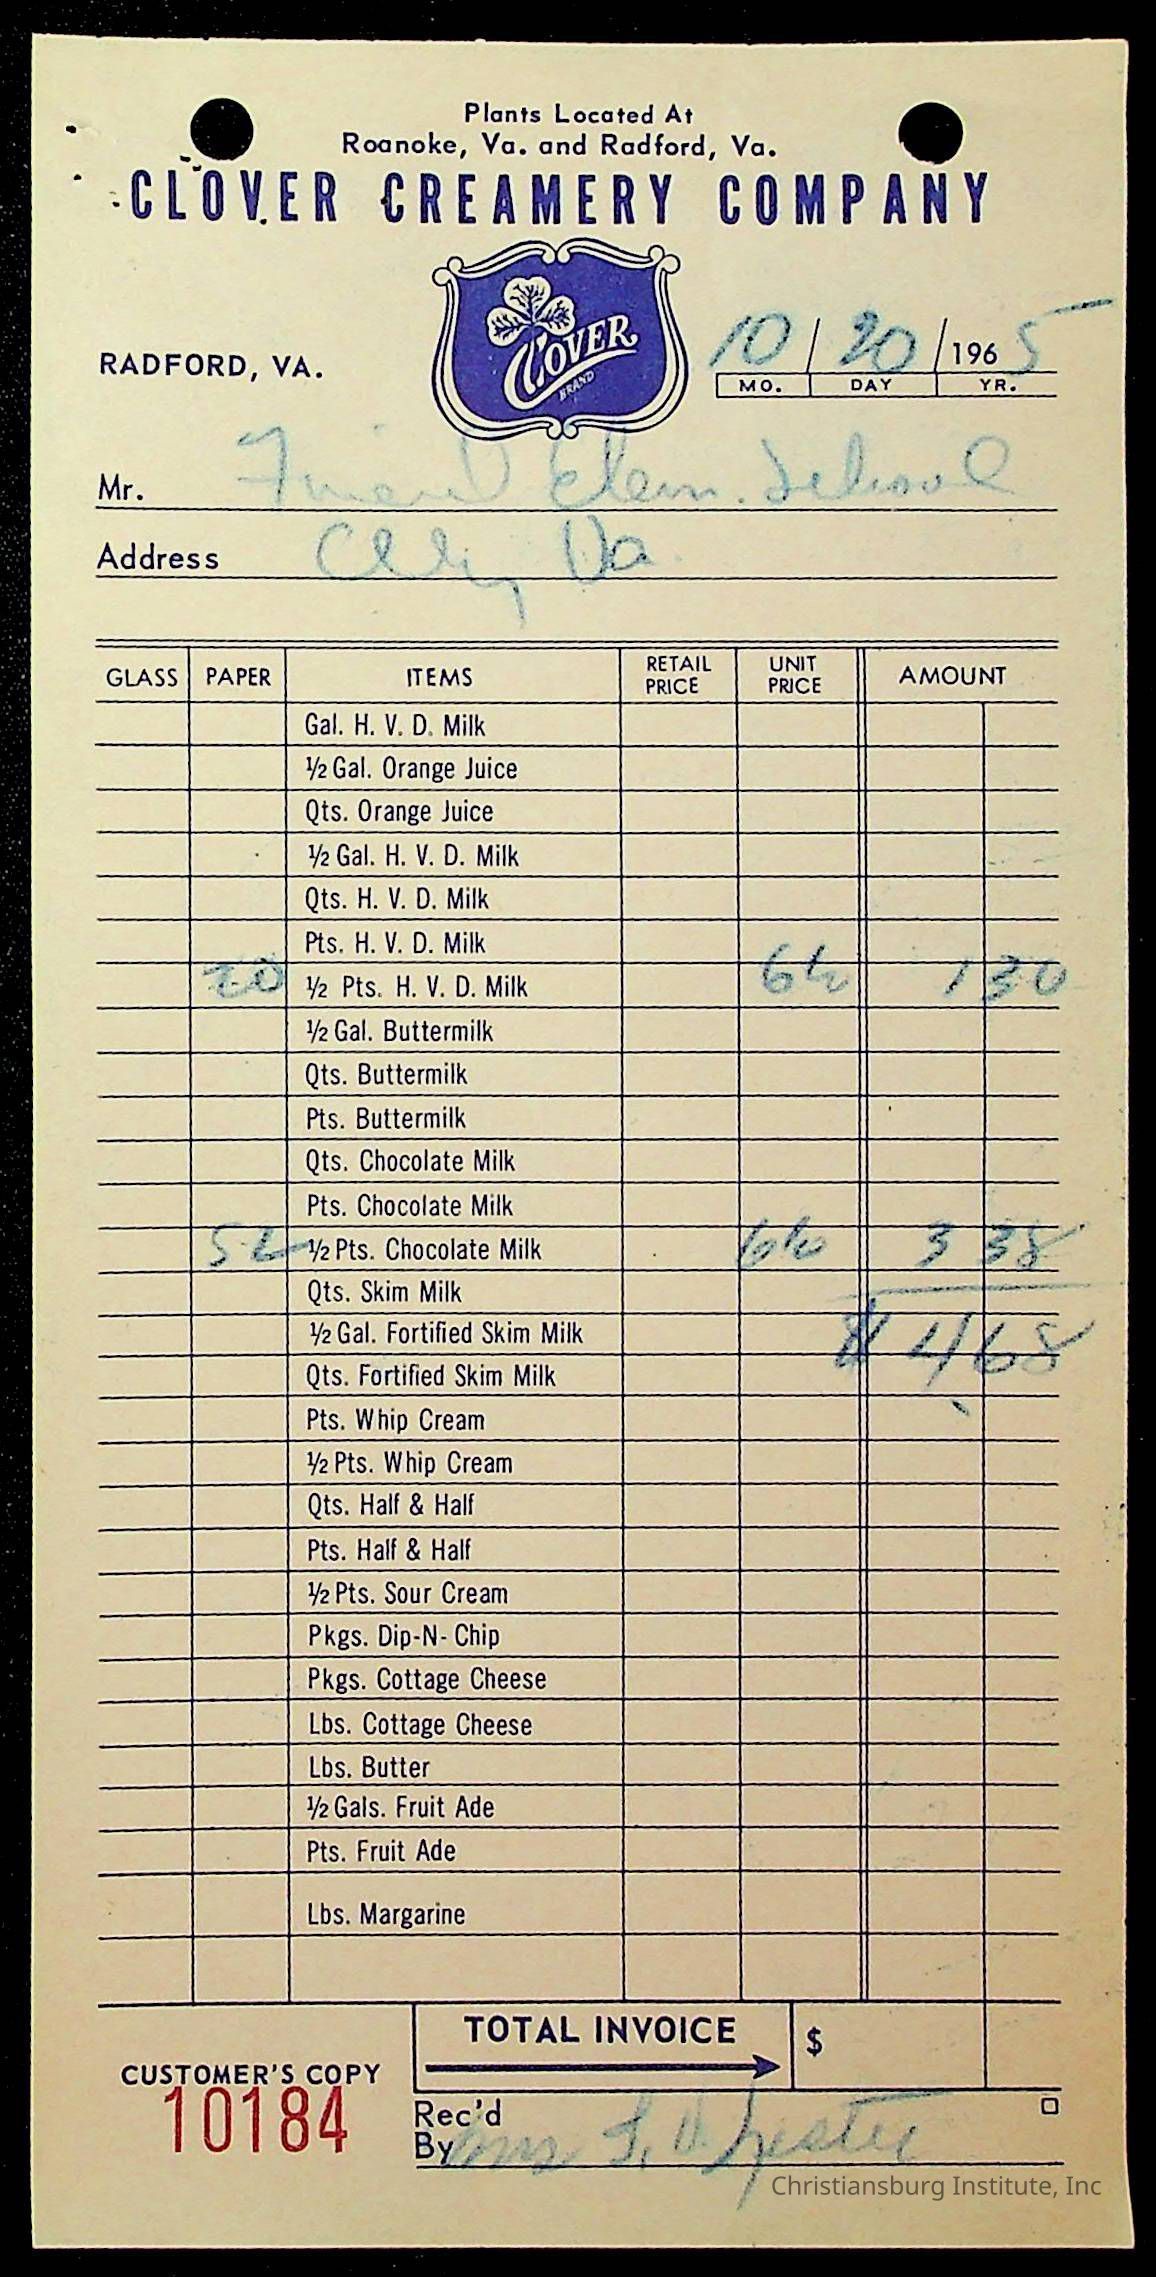 Plants Located At
Roanoke, Va. and Radford, Va.
CLOVER CREAMERY COMPANY
CLOVER
BRAND
RADFORD, VA.
10 / 20 / 196 5
MO. DAY YR.
Mr. Friend Elem. School
Address Va.
GLASS PAPER ITEMS RETAIL PRICE UNIT PRICE AMOUNT
Gal. H. V. D. Milk
½ Gal. Orange Juice
Qts. Orange Juice
½ Gal. H. V. D. Milk
Qts. H. V. D. Milk
Pts. H. V. D. Milk
20 ½ Pts. H. V. D. Milk 6½ 1 30
½ Gal. Buttermilk
Qts. Buttermilk
Pts. Buttermilk
Qts. Chocolate Milk
Pts. Chocolate Milk
52 ½ Pts. Chocolate Milk 6½ 3 38
Qts. Skim Milk
½ Gal. Fortified Skim Milk $ 4 68
Qts. Fortified Skim Milk
Pts. Whip Cream
½ Pts. Whip Cream
Qts. Half & Half
Pts. Half & Half
½ Pts. Sour Cream
Pkgs. Dip-N-Chip
Pkgs. Cottage Cheese
Lbs. Cottage Cheese
Lbs. Butter
½ Gals. Fruit Ade
Pts. Fruit Ade
Lbs. Margarine
TOTAL INVOICE $
CUSTOMER'S COPY
10184
Rec'd
By Lester
Christiansburg Institute, Inc